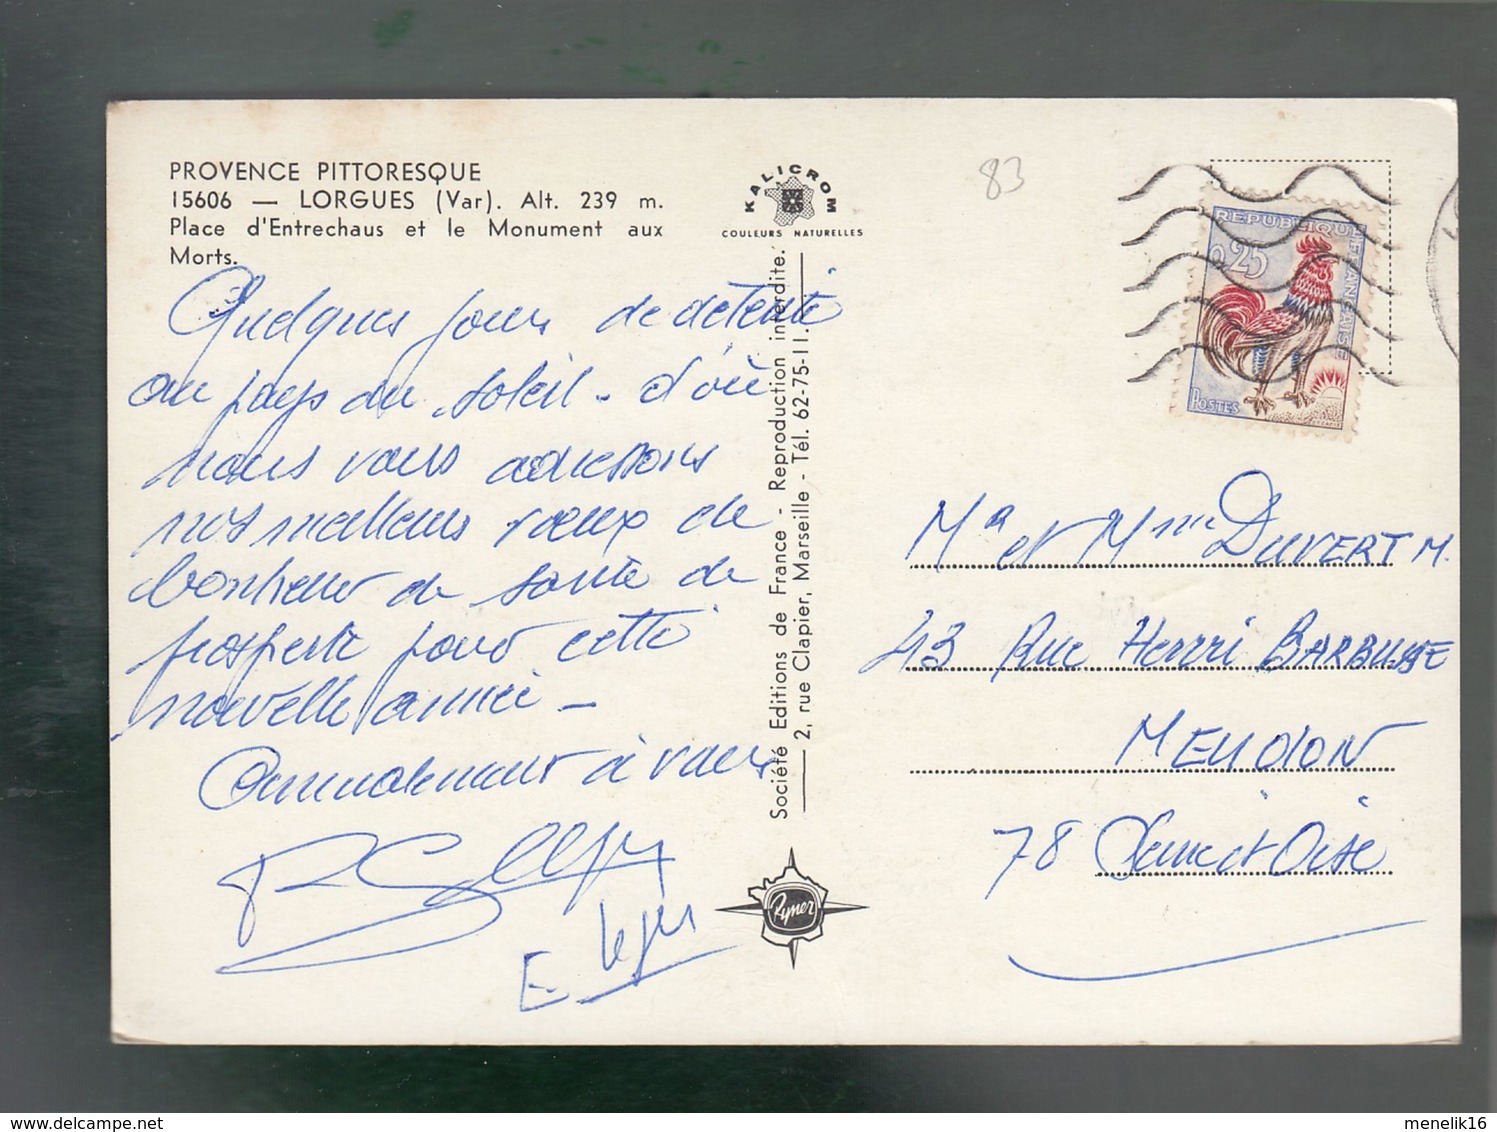 PROVENCE PITTORESQUE
15606 — LORGUES (Var). Alt. 239 m.
Place d'Entrechaus et le Monument aux
Morts.
Quelques jours de détente
au pays du soleil - d'où
nous vous adressons
nos meilleurs voeux de
bonheur de santé de
prospérité pour cette
nouvelle année -
Amicalement à vous
E.
KALICROM
COULEURS NATURELLES
Société Editions de France - Reproduction interdite.
2, rue Clapier, Marseille - Tél. 62-75-11.
Rymer
83
REPUBLIQUE FRANCAISE
0,25
POSTES
Mr et Mme DUVERT M.
43 Rue Henri BARBUSSE
MEUDON
78 Seine et Oise
delcampe.net
menelik16